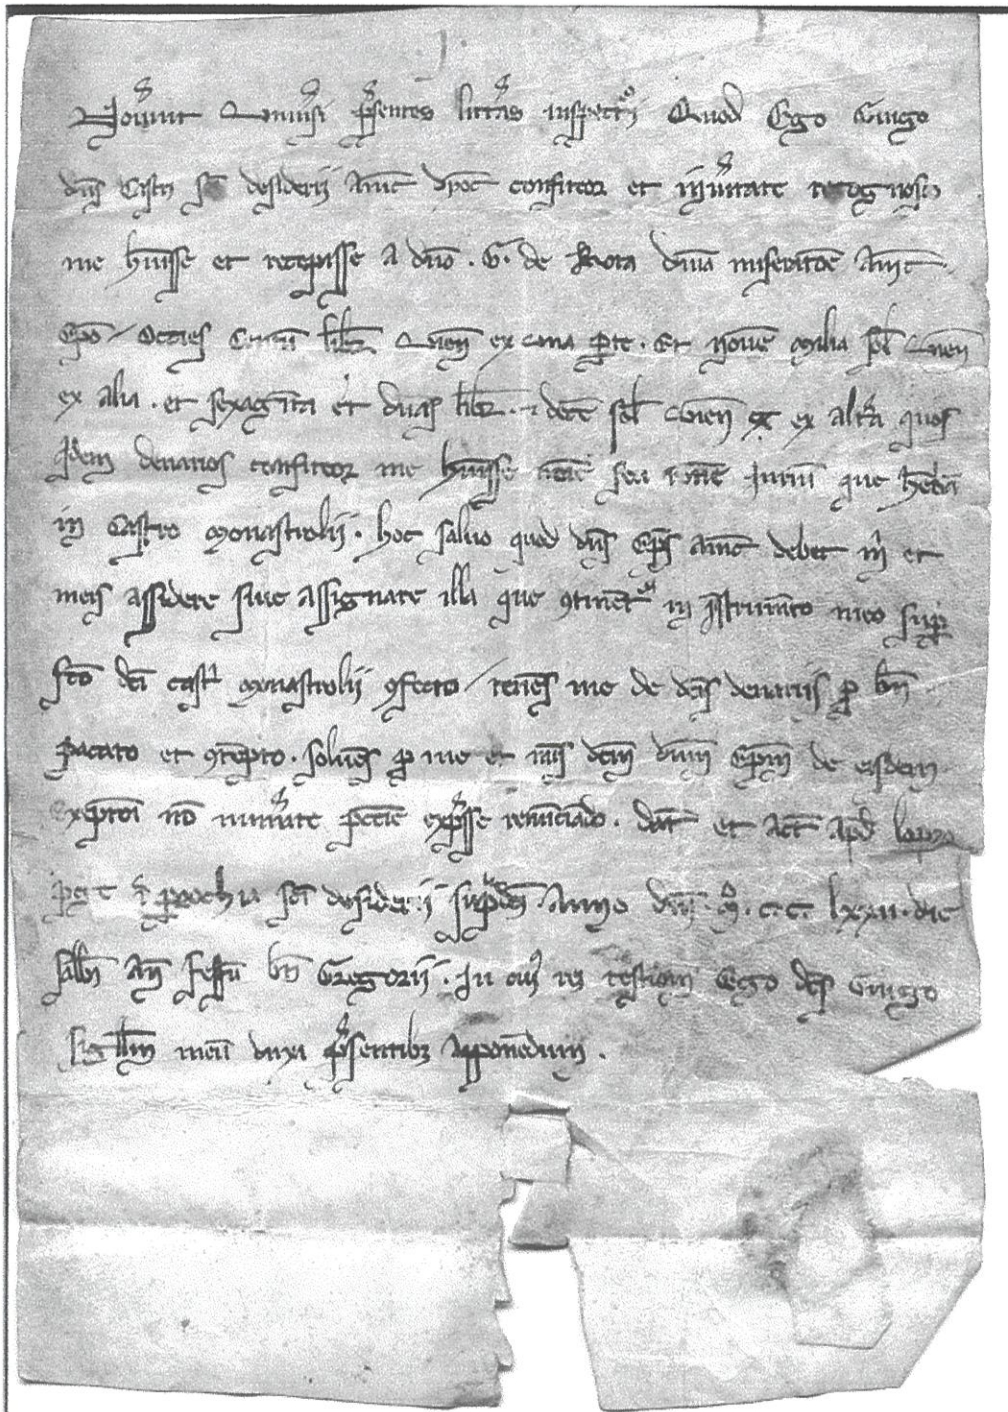 Nov̾int Univ̾si p̾sentes litt̾as inspectur̃i Quod Ego Guigo
dñs Castri sc̃i desiderii Anic̃ dyoc̃ confiteor et in v̾itate recognosco
me h̃uisse et recepisse a dño . G. de Rota divĩa miserac̃oe Anic̃.
Ep̃o / Octies Centũ libr̃ Vieñ ex una p̱te . Et novẽ milia sol̃ Vieñ
ex alia . et sexagĩta et duas libr̃ . ⁊ decẽ sol̃ Vieñ ex alt̾a quos
q̇dem denarios confiteor me h̃uisse noĩe seu r̃one Juriũ que h̃ebã
in Castro Monastrolii . hoc salvo quod dñs Ep̃s Anic̃ debet m̃ et
meis assidere sive assignare illa que ꝯtinẽtur in Instrum̃to meo sup̱
fc̃o dc̃i castri Monastrolii ꝯfecto / tenẽs me de dc̃is denariis ꝓ bñ
pacato et ꝯtẽpto . solvẽs ꝓ me et meis dc̃m dñm Ep̃m de eisdem
Excepc̃oi nõ num̾ate peccũie exp̾sse renũciãdo . dat̃ et act̃ apd̃
ĩ parochia sc̃i desiderii sup̾dc̃i Anno dñi . M̊ . C.C. lxxii . die
sabb̃i añ festũ bĩ Gregorii . In cuiꝰ rei testim̃ Ego dc̃s Guigo
sigillũ meũ duxi p̾sentibꝫ apponẽdum .